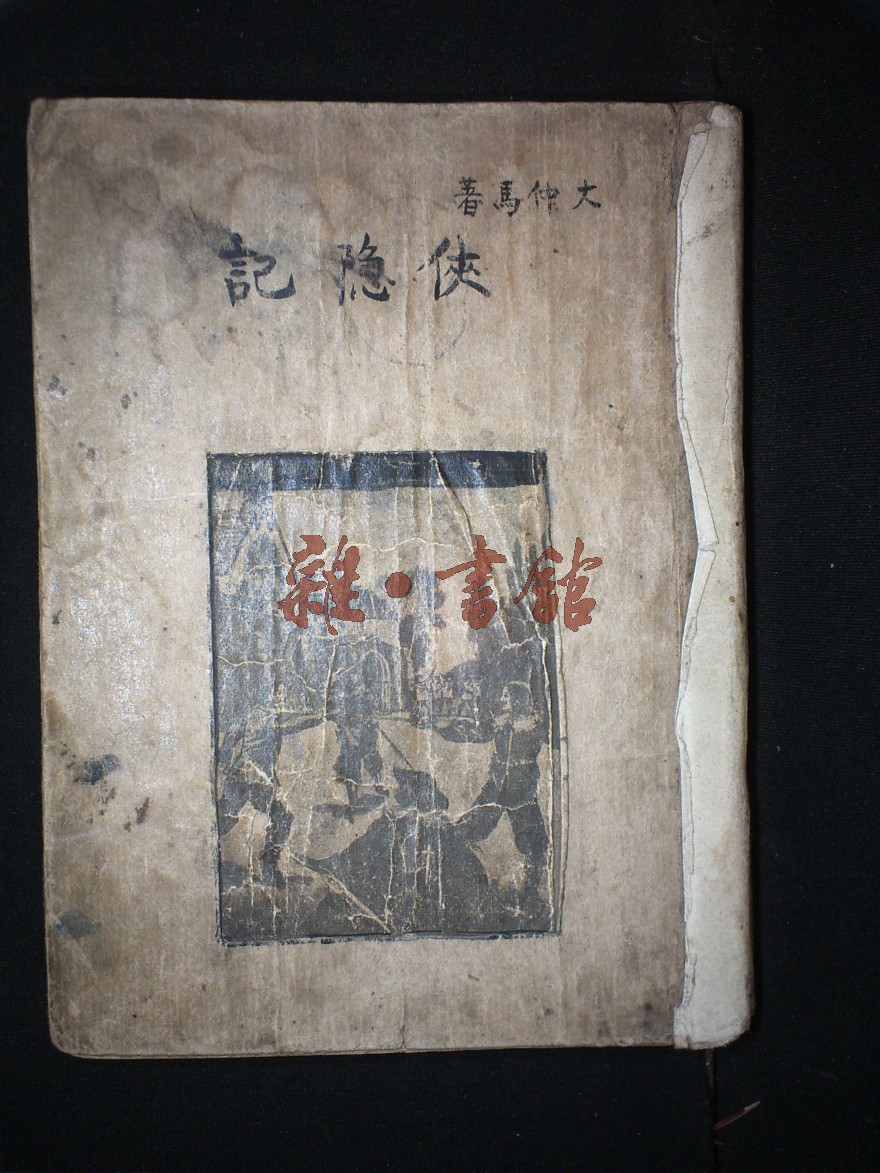 大仲馬著
俠隐記
雜·書館